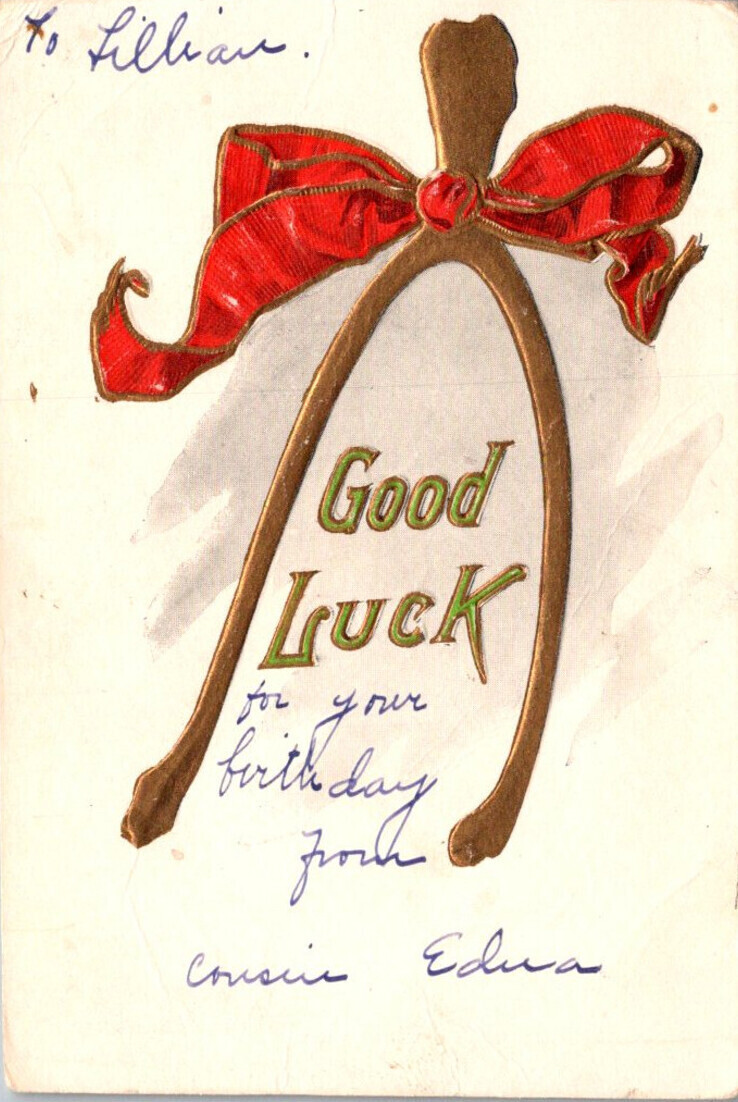 To Lillian.
Good
Luck
for your
birthday
from
cousin Edna